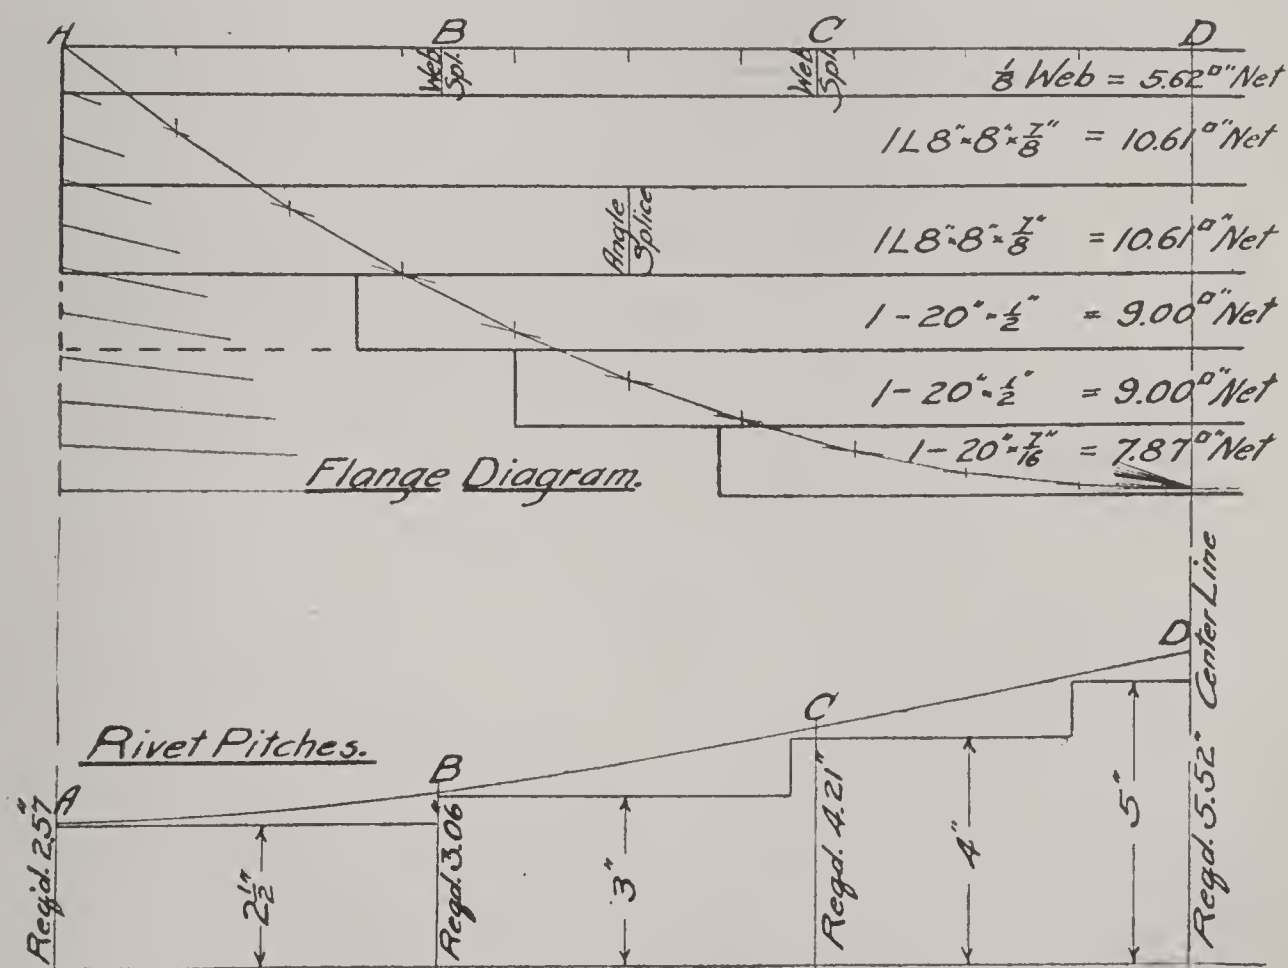 A B C D
Web Spl.
Web Spl.
1/8 Web = 5.62□" Net
1L 8"×8"×7/8" = 10.61□" Net
Angle Splice
1L 8"×8"×7/8" = 10.61□" Net
1-20"×1/2" = 9.00□" Net
1-20"×1/2" = 9.00□" Net
1-20"×7/16" = 7.87□" Net
Flange Diagram.
Center Line
Rivet Pitches.
A B C D
Reqd. 2.57"
2 1/2"
Reqd. 3.06"
3"
Reqd. 4.21"
4"
5"
Reqd. 5.52"